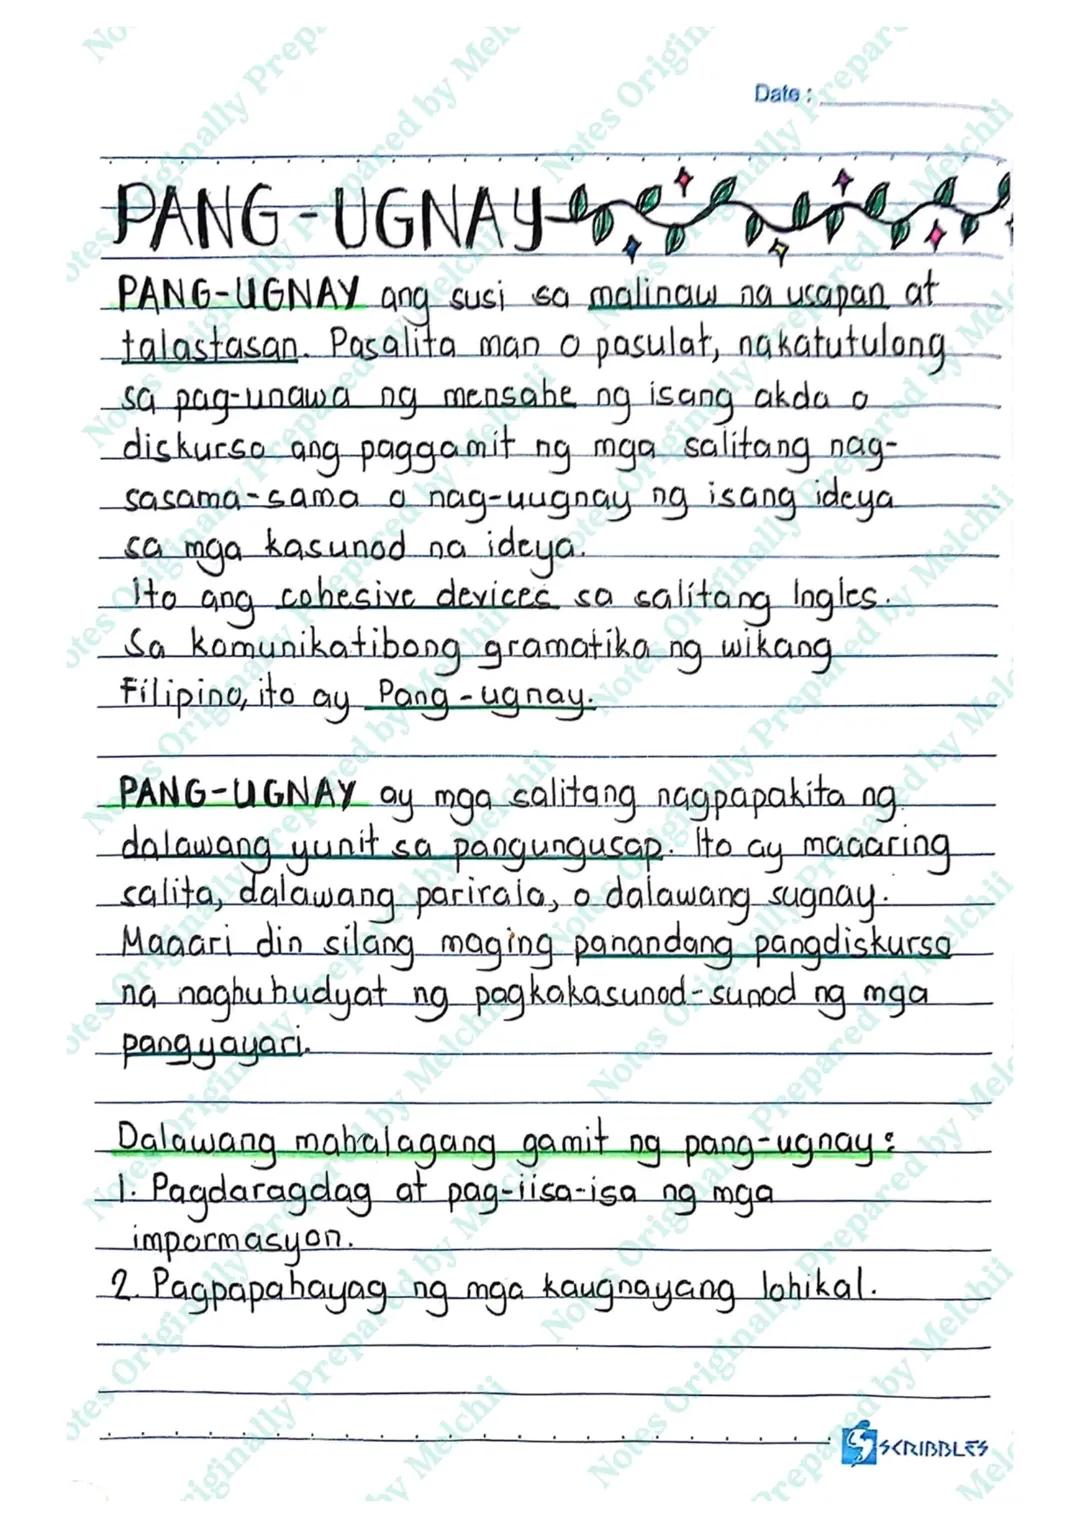 Date :
PANG-UGNAY
PANG-UGNAY ang susi sa malinaw na usapan at
talastasan. Pasalita man o pasulat, nakatutulong
sa pag-unawa ng mensahe ng isang akda o
diskurso ang paggamit ng mga salitang nag-
sasama-sama o nag-uugnay ng isang ideya
sa mga kasunod na ideya.
Ito ang cohesive devices sa salitang Ingles.
Sa komunikatibong gramatika ng wikang
Filipino, ito ay Pang-ugnay.
PANG-UGNAY ay mga salitang nagpapakita ng
dalawang yunit sa pangungusap. Ito ay maaaring
salita, dalawang parirala, o dalawang sugnay.
Maaari din silang maging panandang pangdiskurso
na naghuhudyat ng pagkakasunod-sunod ng mga
pangyayari.
Dalawang mahalagang gamit ng pang-ugnay:
1. Pagdaragdag at pag-iisa-isa ng mga
impormasyon.
2. Pagpapahayag ng mga kaugnayang lohikal.
SCRIBBLES
Notes Originally Prepared by Melchii